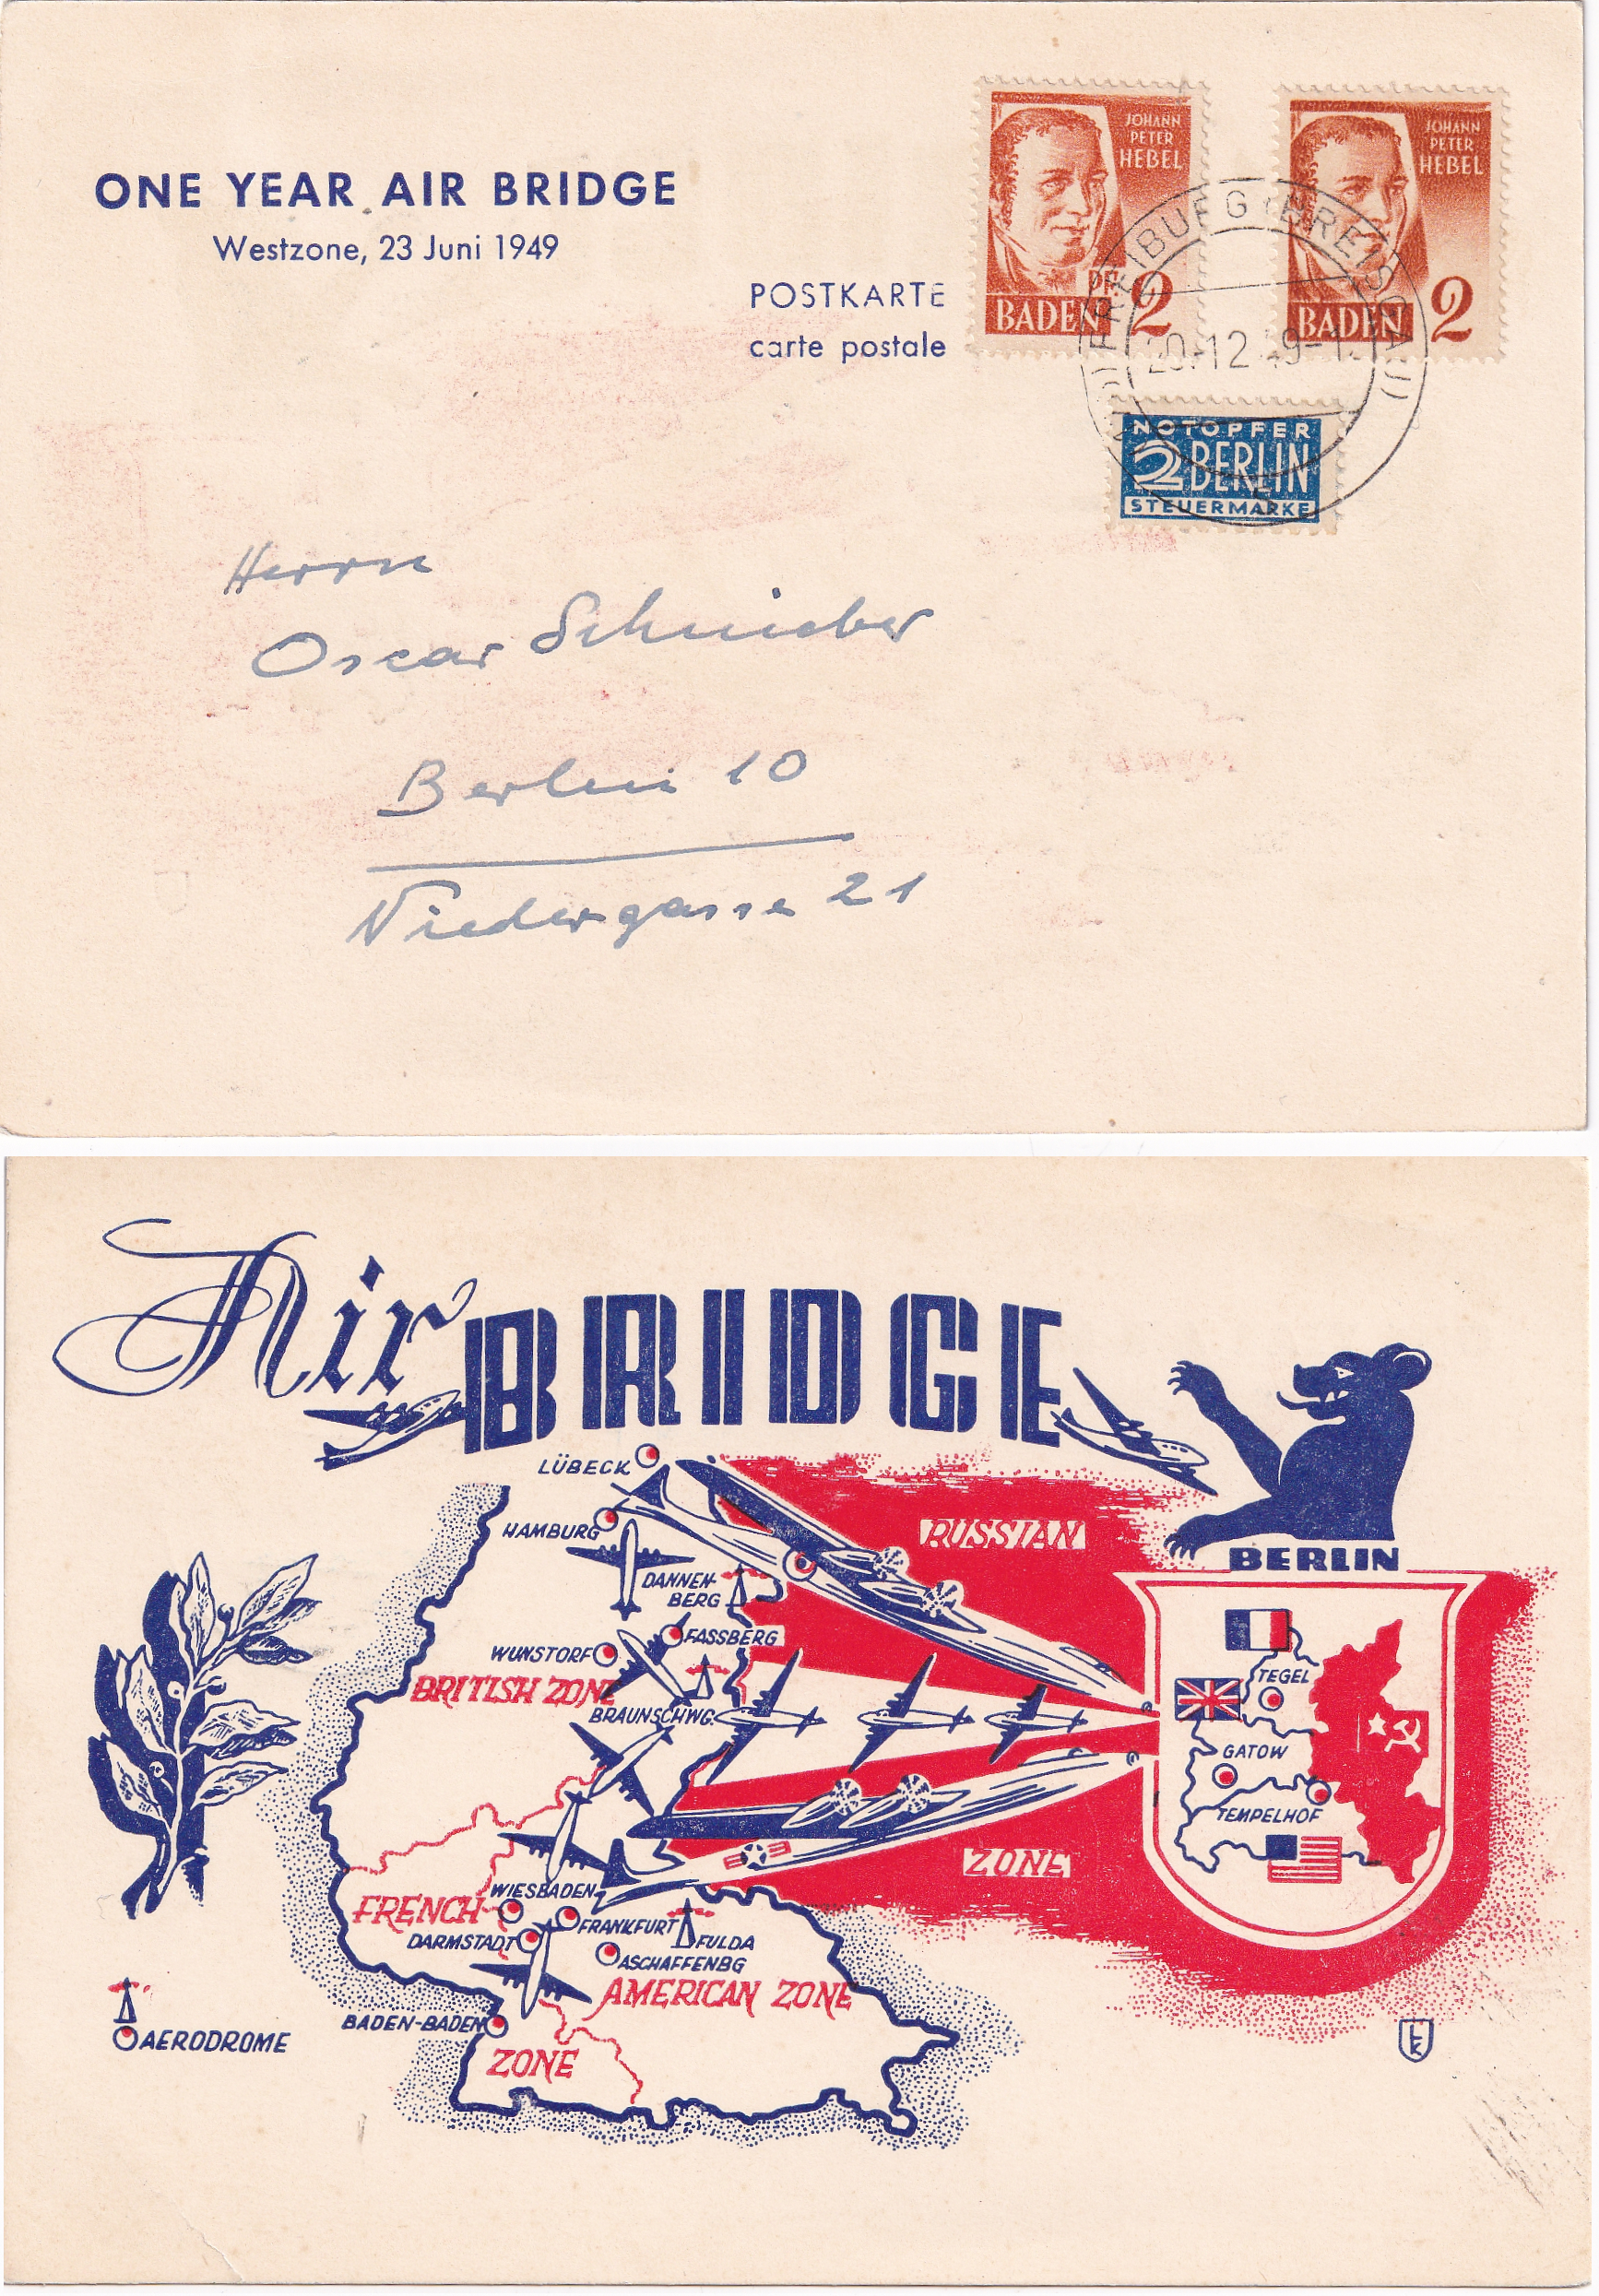 ONE YEAR AIR BRIDGE
Westzone, 23 Juni 1949
POSTKARTE
carte postale
JOHANN
PETER
HEBEL
PF.
BADEN 2
JOHANN
PETER
HEBEL
BADEN 2
FREIBURG (BREISGAU)
20.12.49-1
NOTOPFER
2 BERLIN
STEUERMARKE
Herrn
Oscar Schnieber
Berlin 10
Niedergasse 21
Air BRIDGE
LÜBECK
HAMBURG
RUSSIAN
BERLIN
DANNEN-
BERG
WUNSTORF
FASSBERG
TEGEL
BRITISH ZONE
BRAUNSCHWG.
GATOW
TEMPELHOF
ZONE
WIESBADEN
FRENCH
FRANKFURT
DARMSTADT
FULDA
ASCHAFFENBG
AMERICAN ZONE
BADEN-BADEN
AERODROME
ZONE